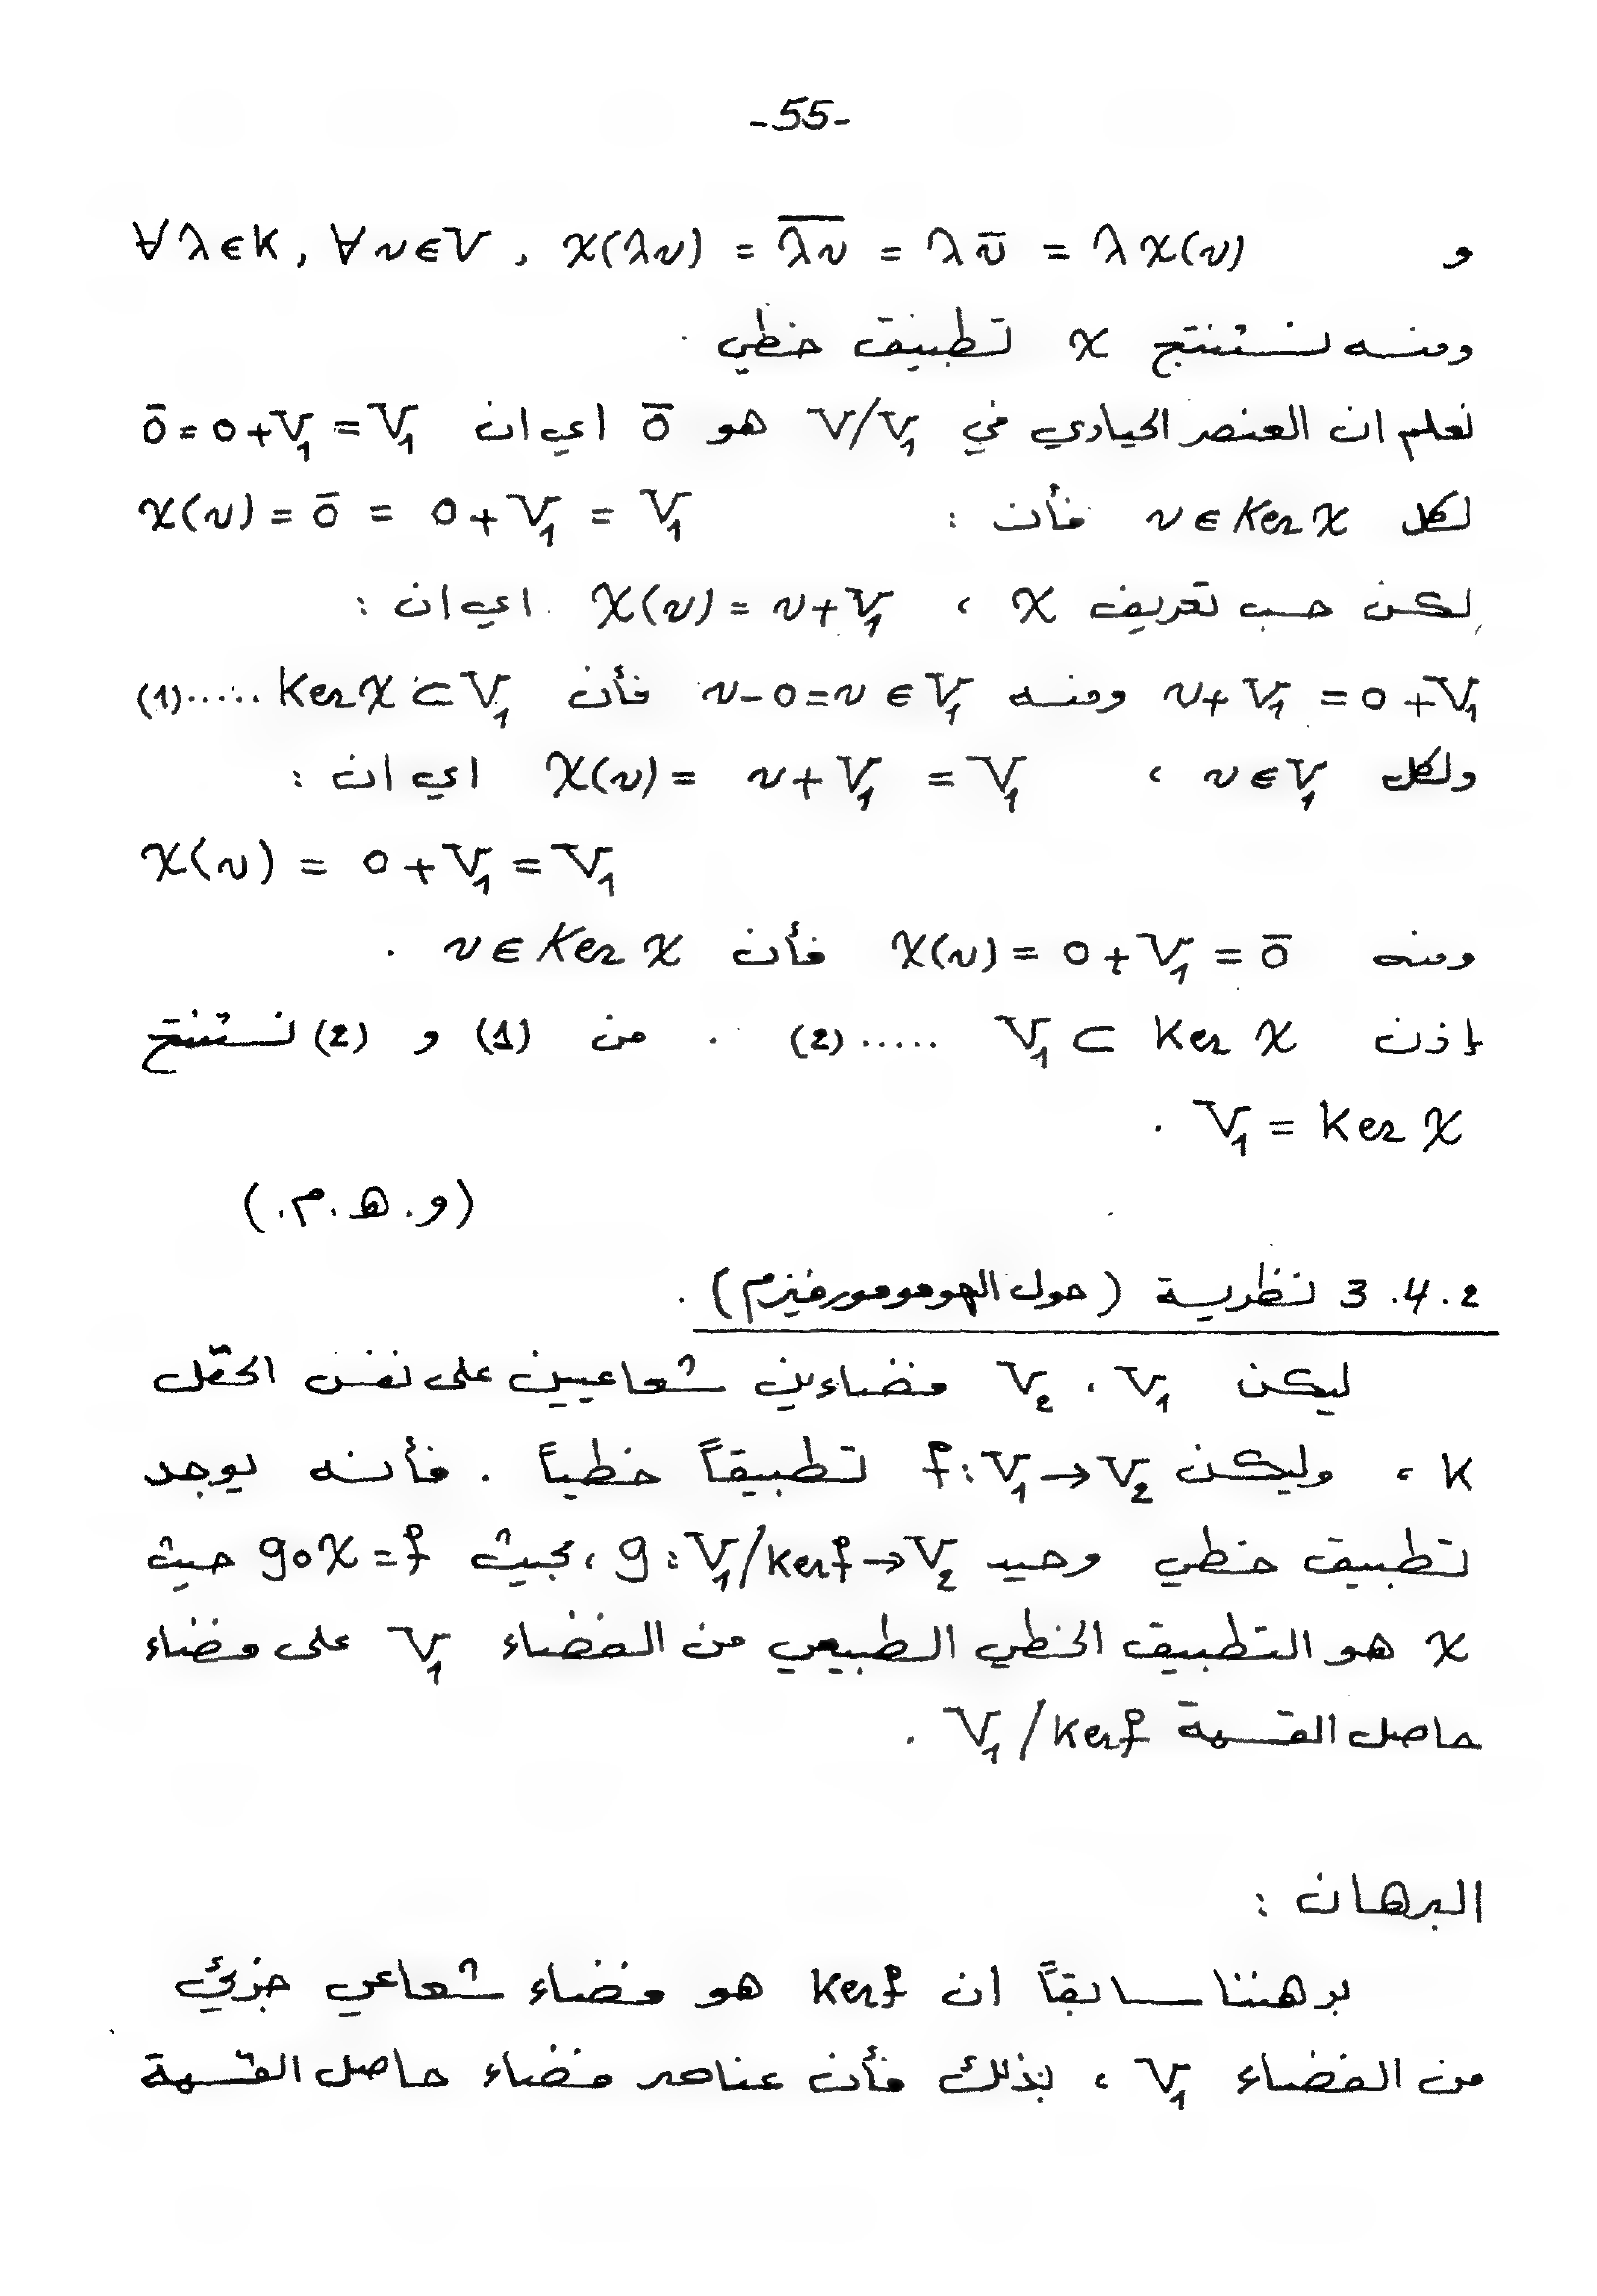 -55-
و ∀λ∈K, ∀v∈V, χ(λv) = \overline{λv} = λv̄ = λχ(v)
ومنه نستنتج χ تطبيق خطي .
نعلم ان العنصر الحيادي في V/V₁ هو 0̄ اي ان 0̄ = 0+V₁ = V₁
لكل v∈Ker χ فأن : χ(v) = 0̄ = 0+V₁ = V₁
لكن حسب تعريف χ ، χ(v) = v+V₁ اي ان :
v+V₁ = 0+V₁ ومنه v-0=v∈V₁ فأن Ker χ ⊂ V₁ .....(1)
ولكل v∈V₁ ، χ(v) = v+V₁ = V₁ اي ان :
χ(v) = 0+V₁ = V₁
ومنه χ(v) = 0+V₁ = 0̄ فأن v∈Ker χ .
إذن V₁ ⊂ Ker χ .....(2) . من (1) و (2) نستنتج
V₁ = Ker χ .
(و.ه.م.)
3.4.2 نظرية (حول الهومومورفيزم) .
ليكن V₁ ، V₂ فضاءين شعاعيين على نفس الحقل
K ، وليكن f:V₁→V₂ تطبيقاً خطياً . فأنه يوجد
تطبيق خطي وحيد g:V₁/Ker f→V₂ ، بحيث g∘χ=f حيث
χ هو التطبيق الخطي الطبيعي من الفضاء V₁ على فضاء
حاصل القسمة V₁/Ker f .
البرهان :
برهننا سابقاً ان Ker f هو فضاء شعاعي جزئي
من الفضاء V₁ ، بذلك فأن عناصر فضاء حاصل القسمة